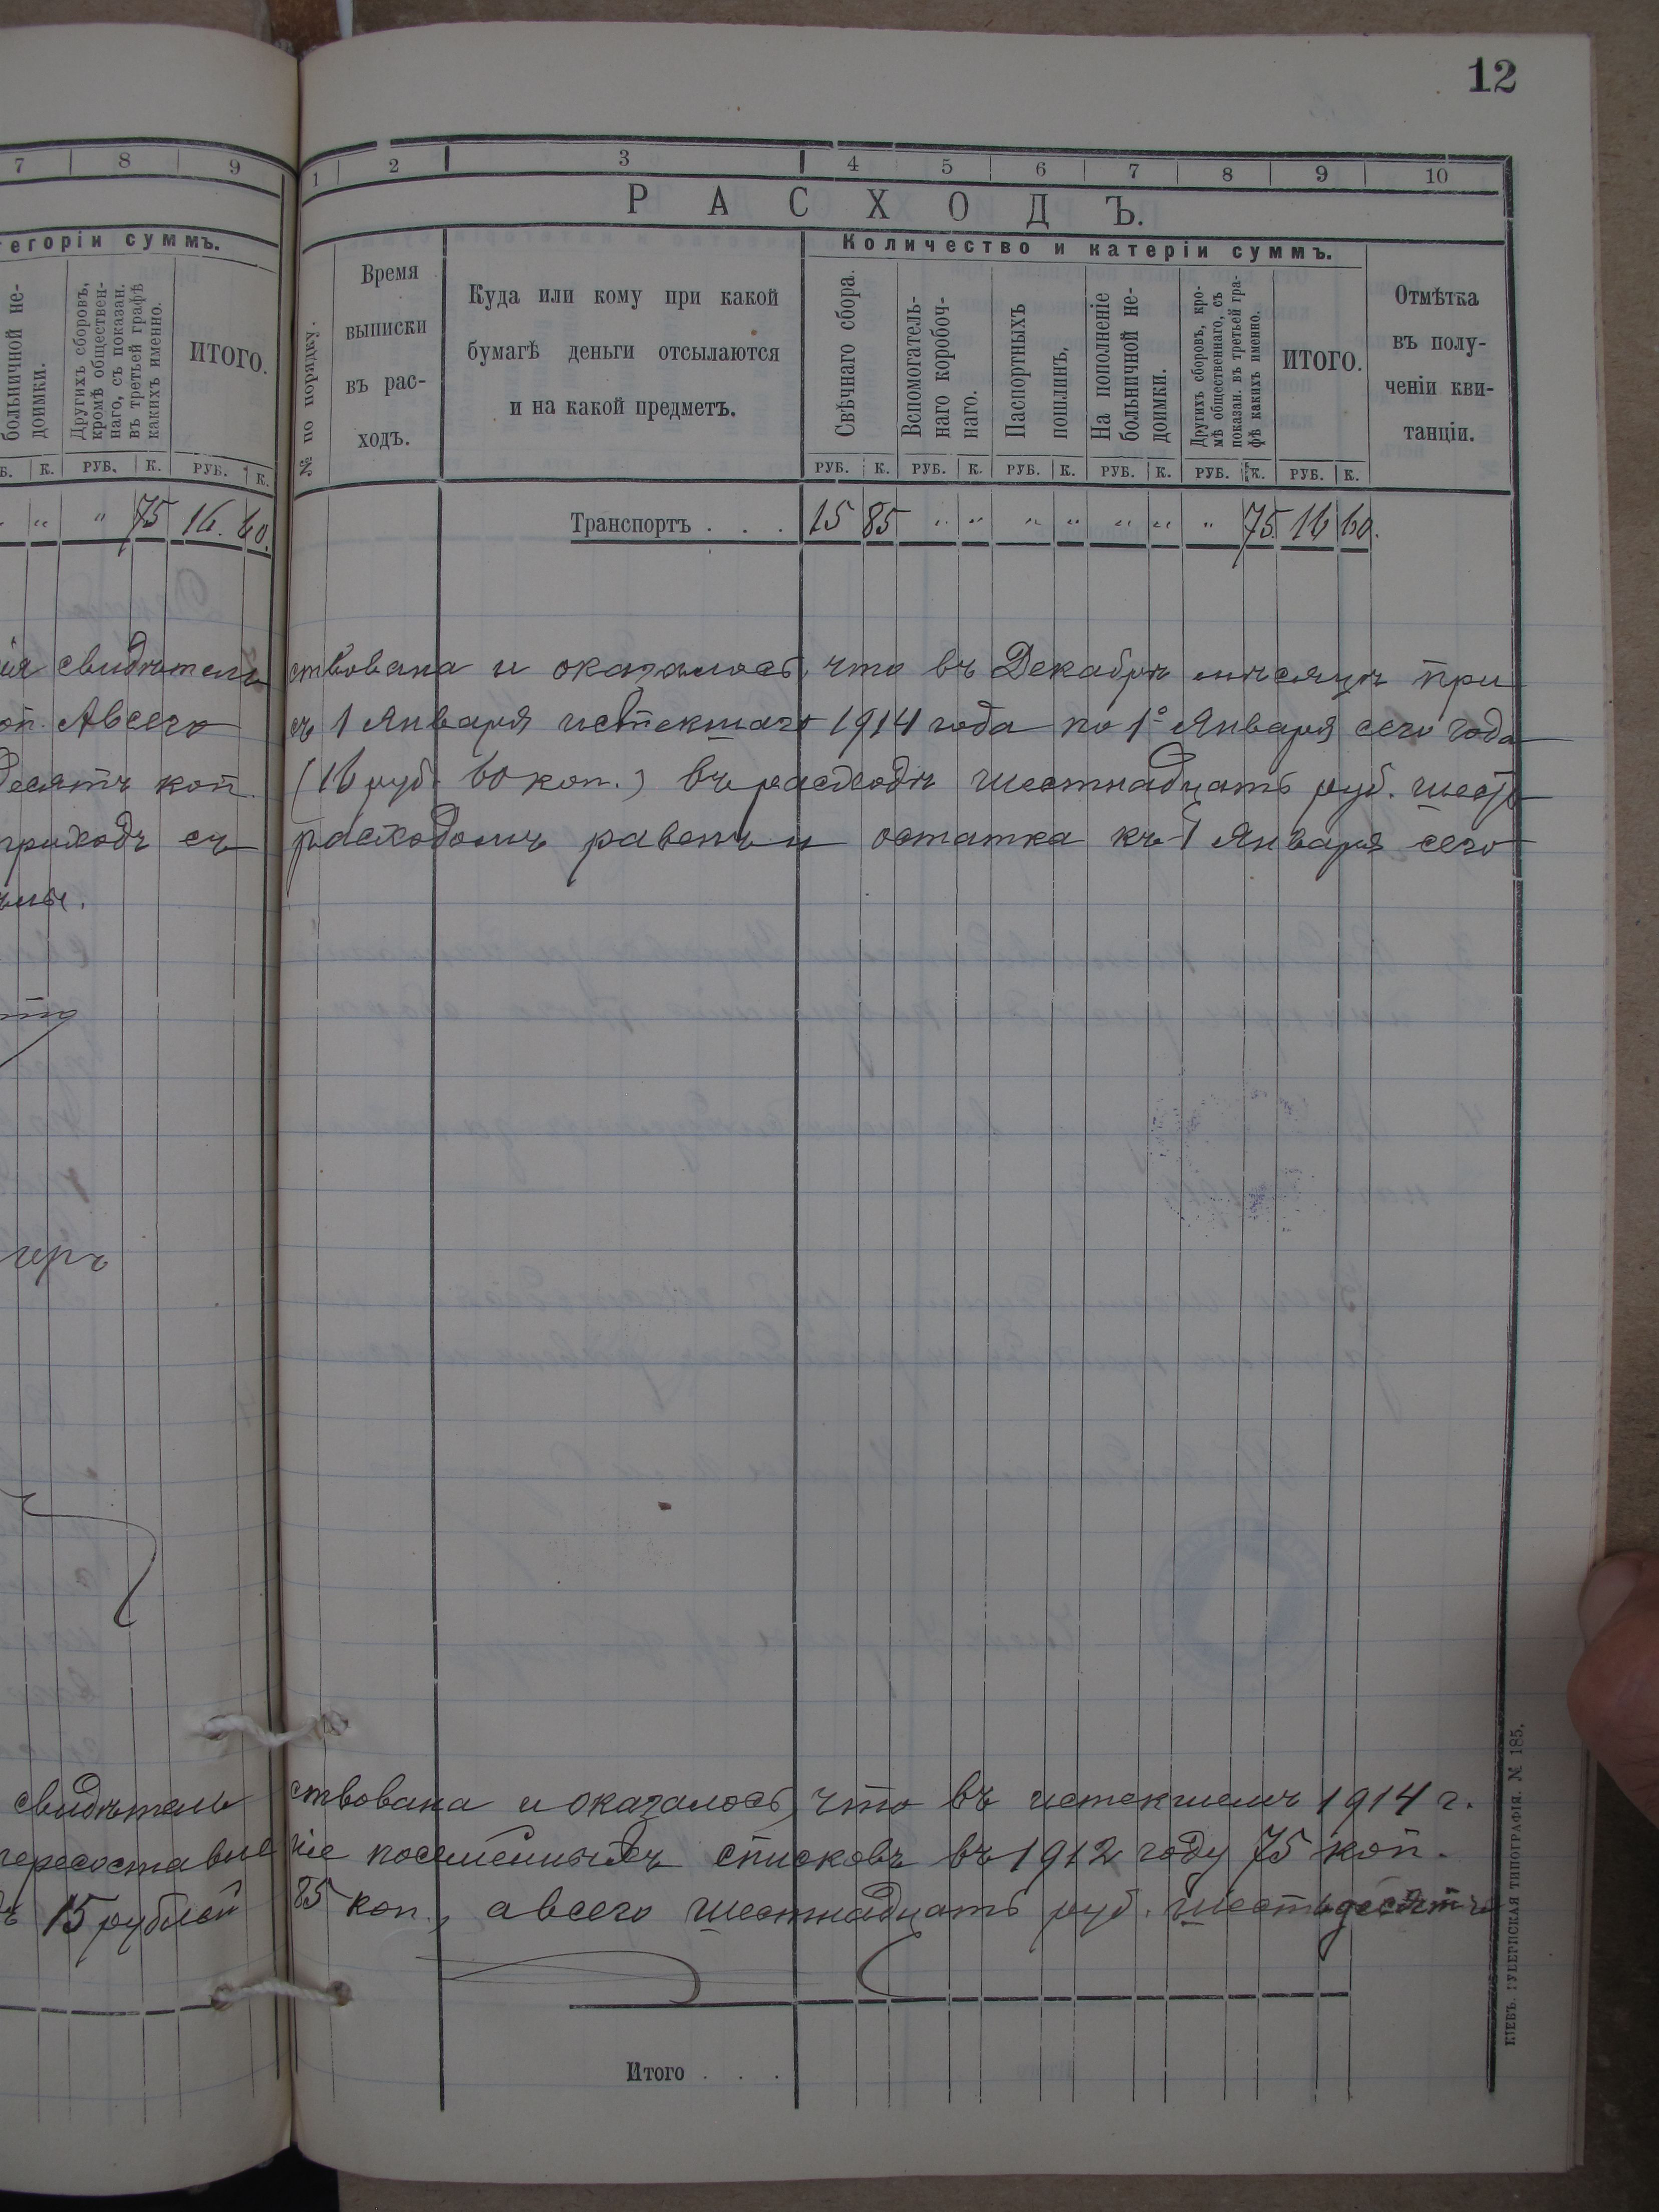 12
7 8 9
егоріи суммъ.
больничной не-
доимки.
Другихъ сборовъ,
кромѣ обществен-
наго, съ показан.
въ третьей графѣ
какихъ именно.
ИТОГО.
Б. К. РУБ. К. РУБ. К.
" " 75 16. 60.
1 2 3 4 5 6 7 8 9 10
РАСХОДЪ.
Количество и катеріи суммъ.
№ по порядку.
Время
выписки
въ рас-
ходъ.
Куда или кому при какой
бумагѣ деньги отсылаются
и на какой предметъ.
Свѣчнаго сбора.
Вспомогатель-
наго коробоч-
наго.
Паспортныхъ
пошлинъ,
На пополненіе
больничной не-
доимки.
Другихъ сборовъ, кро-
мѣ общественнаго, съ
показан. въ третьей гра-
фѣ какихъ именно.
ИТОГО.
Отмѣтка
въ полу-
ченіи кви-
танціи.
РУБ. К. РУБ. К. РУБ. К. РУБ. К. РУБ. К. РУБ. К.
Транспортъ . . . 15 85 " " " " " " " 75 16 60.
ія свидѣтель ствована и оказалось, что въ Декабрѣ мѣсяцѣ при
оп. Авсего съ 1 Января истекшаго 1914 года по 1º Января сего года
десятъ коп. (16 руб. 60 коп.) въ расходѣ шестнадцать руб. шесть
приходъ съ расходомъ равенъ и остатка къ 1 Января сего
свидѣтель ствована и оказалось, что въ истекшемъ 1914 г.
пересоставле ніе посемейныхъ списковъ въ 1912 году 75 коп.
15 рублей 85 коп., а всего шестнадцать руб. шестьдесятъ
Итого . . .
КІЕВЪ. ГУБЕРНСКАЯ ТИПОГРАФІЯ. № 185.